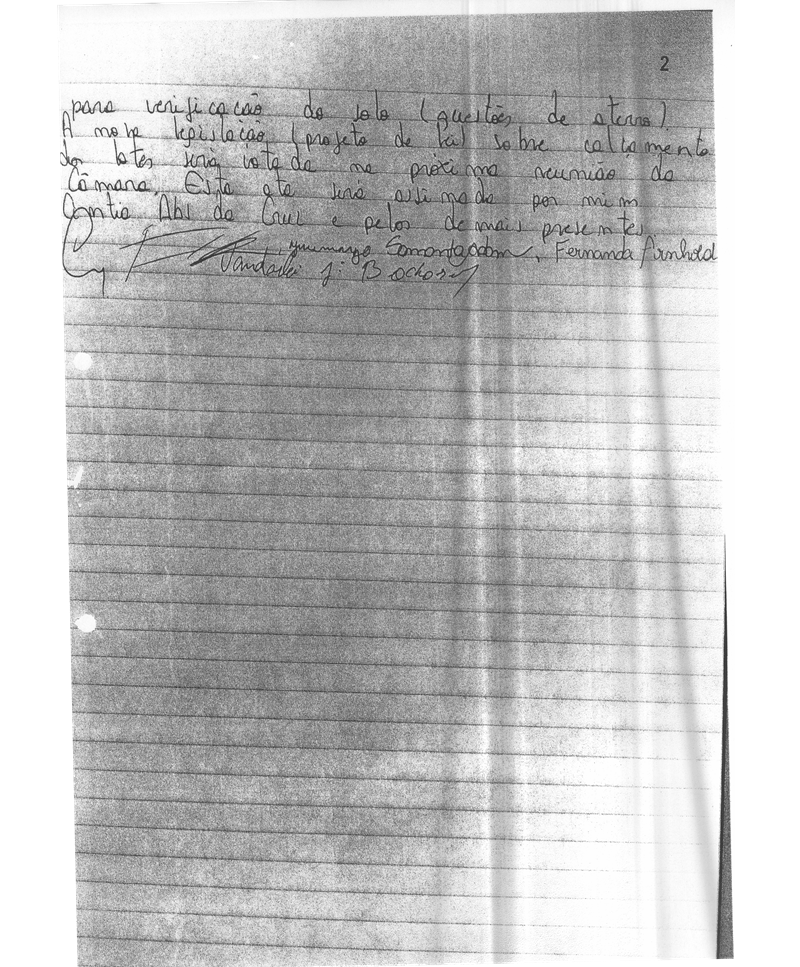 2
para verificação do solo (questões de aterro).
A nova legislação (projeto de lei) sobre calçamento
dos lotes seria votada na próxima reunião da
Câmara. Esta ata será assinada por mim
Abl da Cruz e pelos demais presentes.
Fernanda Arnhold